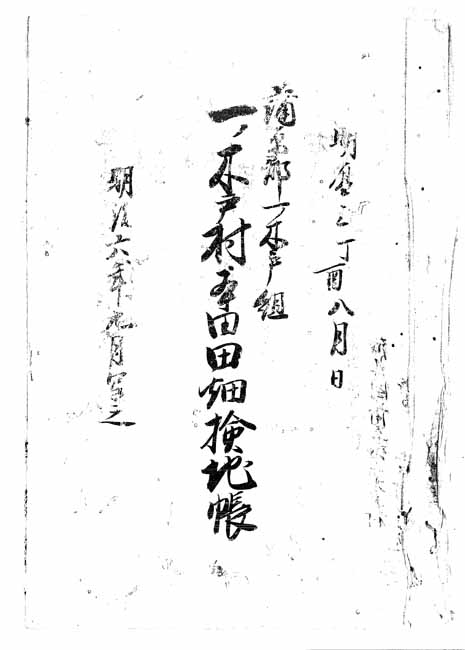 明暦三丁酉八月日
蒲原郡一ノ木戸組
一ノ木戸村本田田畑検地帳
明治六年九月写之